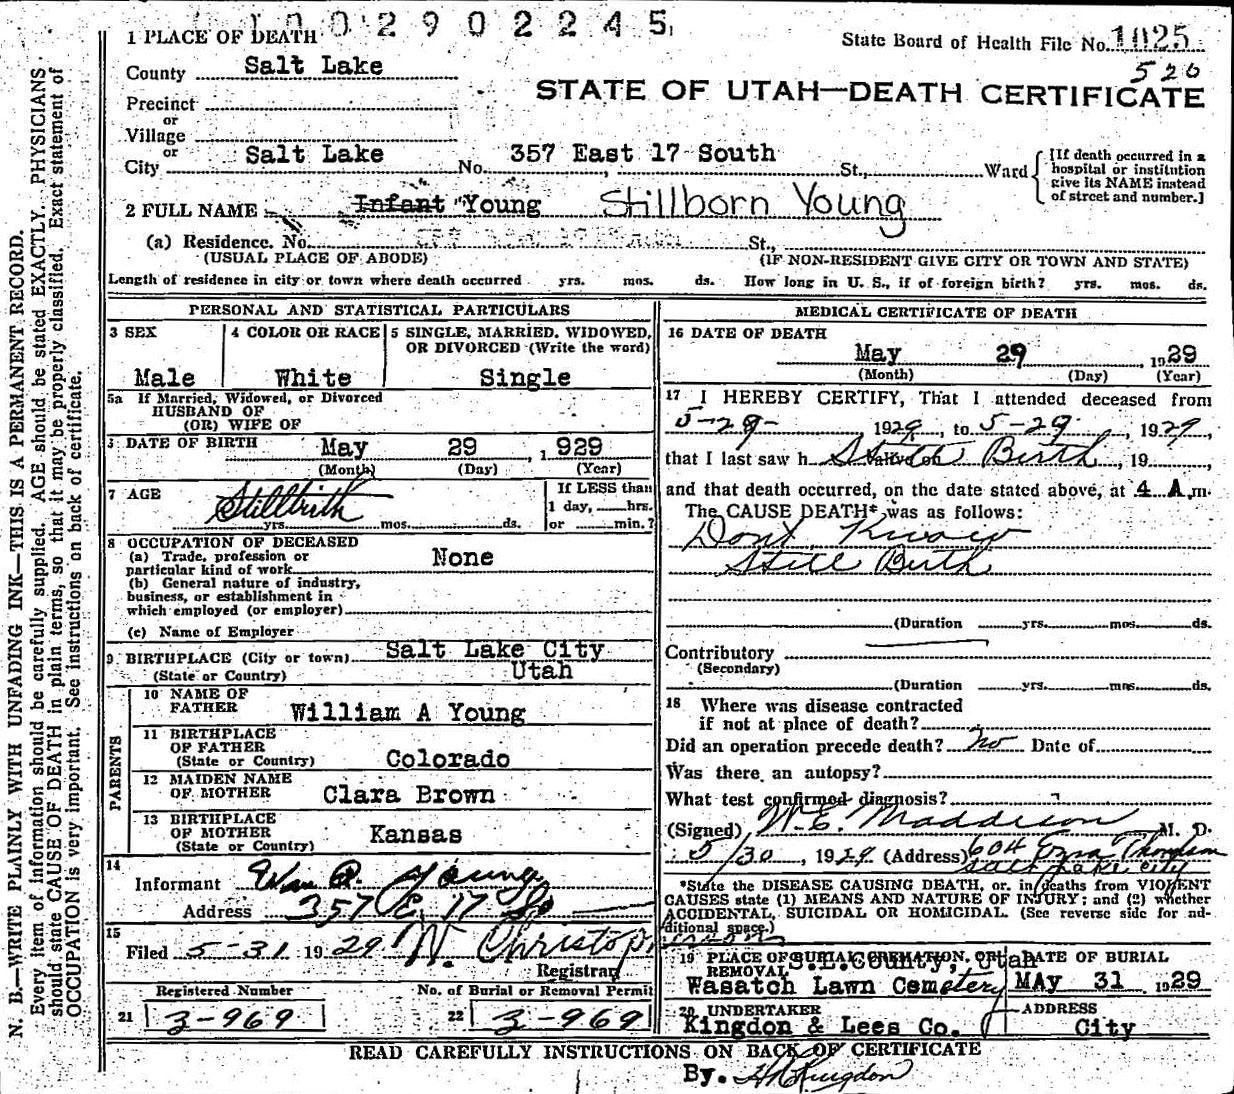 0 0 2 9 0 2 2 4 5
1 PLACE OF DEATH
State Board of Health File No. 1025
520
County Salt Lake
STATE OF UTAH—DEATH CERTIFICATE
Precinct
or
Village
or
City Salt Lake No. 357 East 17 South St., Ward
[If death occurred in a hospital or institution give its NAME instead of street and number.]
2 FULL NAME Infant Young Stillborn Young
(a) Residence. No. St.,
(USUAL PLACE OF ABODE) (IF NON-RESIDENT GIVE CITY OR TOWN AND STATE)
Length of residence in city or town where death occurred yrs. mos. ds. How long in U. S., if of foreign birth? yrs. mos. ds.
PERSONAL AND STATISTICAL PARTICULARS
3 SEX
Male
4 COLOR OR RACE
White
5 SINGLE, MARRIED, WIDOWED, OR DIVORCED (Write the word)
Single
5a If Married, Widowed, or Divorced
HUSBAND OF
(OR) WIFE OF
DATE OF BIRTH May 29, 1929
(Month) (Day) (Year)
7 AGE Stillbirth
yrs. mos. ds.
If LESS than
1 day, hrs.
or min.?
8 OCCUPATION OF DECEASED
(a) Trade, profession or
particular kind of work None
(b) General nature of industry,
business, or establishment in
which employed (or employer)
(c) Name of Employer
9 BIRTHPLACE (City or town) Salt Lake City
(State or Country) Utah
PARENTS
10 NAME OF FATHER William A Young
11 BIRTHPLACE OF FATHER
(State or Country) Colorado
12 MAIDEN NAME OF MOTHER Clara Brown
13 BIRTHPLACE OF MOTHER
(State or Country) Kansas
14
Informant Wm A. Young
Address 357 E. 17 So
15
Filed 5-31 1929 W. Christop
Registrar
Registered Number No. of Burial or Removal Permit
21 3-969 22 3-969
MEDICAL CERTIFICATE OF DEATH
16 DATE OF DEATH
May 29, 1929
(Month) (Day) (Year)
17 I HEREBY CERTIFY, That I attended deceased from
5-29- 1929, to 5-29, 1929,
that I last saw h alive on Still Birth, 19
and that death occurred, on the date stated above, at 4 A.m.
The CAUSE DEATH* was as follows:
Dont Know
Still Birth
(Duration yrs. mos. ds.
Contributory
(Secondary)
(Duration yrs. mos. ds.
18 Where was disease contracted
if not at place of death?
Did an operation precede death? No Date of
Was there an autopsy?
What test confirmed diagnosis?
(Signed) W.E. Maddison M. D.
5/30, 1929 (Address) 604 Ezra Thompson
Salt Lake City
*State the DISEASE CAUSING DEATH, or, in deaths from VIOLENT
CAUSES state (1) MEANS AND NATURE OF INJURY; and (2) whether
ACCIDENTAL, SUICIDAL OR HOMICIDAL. (See reverse side for ad-
ditional space.)
19 PLACE OF BURIAL, CREMATION, OR
REMOVAL S.L.County, Utah
Wasatch Lawn Cemetery
DATE OF BURIAL
MAY 31 1929
20 UNDERTAKER
Kingdon & Lees Co.
ADDRESS
City
READ CAREFULLY INSTRUCTIONS ON BACK OF CERTIFICATE
By. Kingdon
N. B.—WRITE PLAINLY WITH UNFADING INK—THIS IS A PERMANENT RECORD.
Every item of information should be carefully supplied. AGE should be stated EXACTLY. PHYSICIANS
should state CAUSE OF DEATH in plain terms, so that it may be properly classified. Exact statement of
OCCUPATION is very important. See instructions on back of certificate.